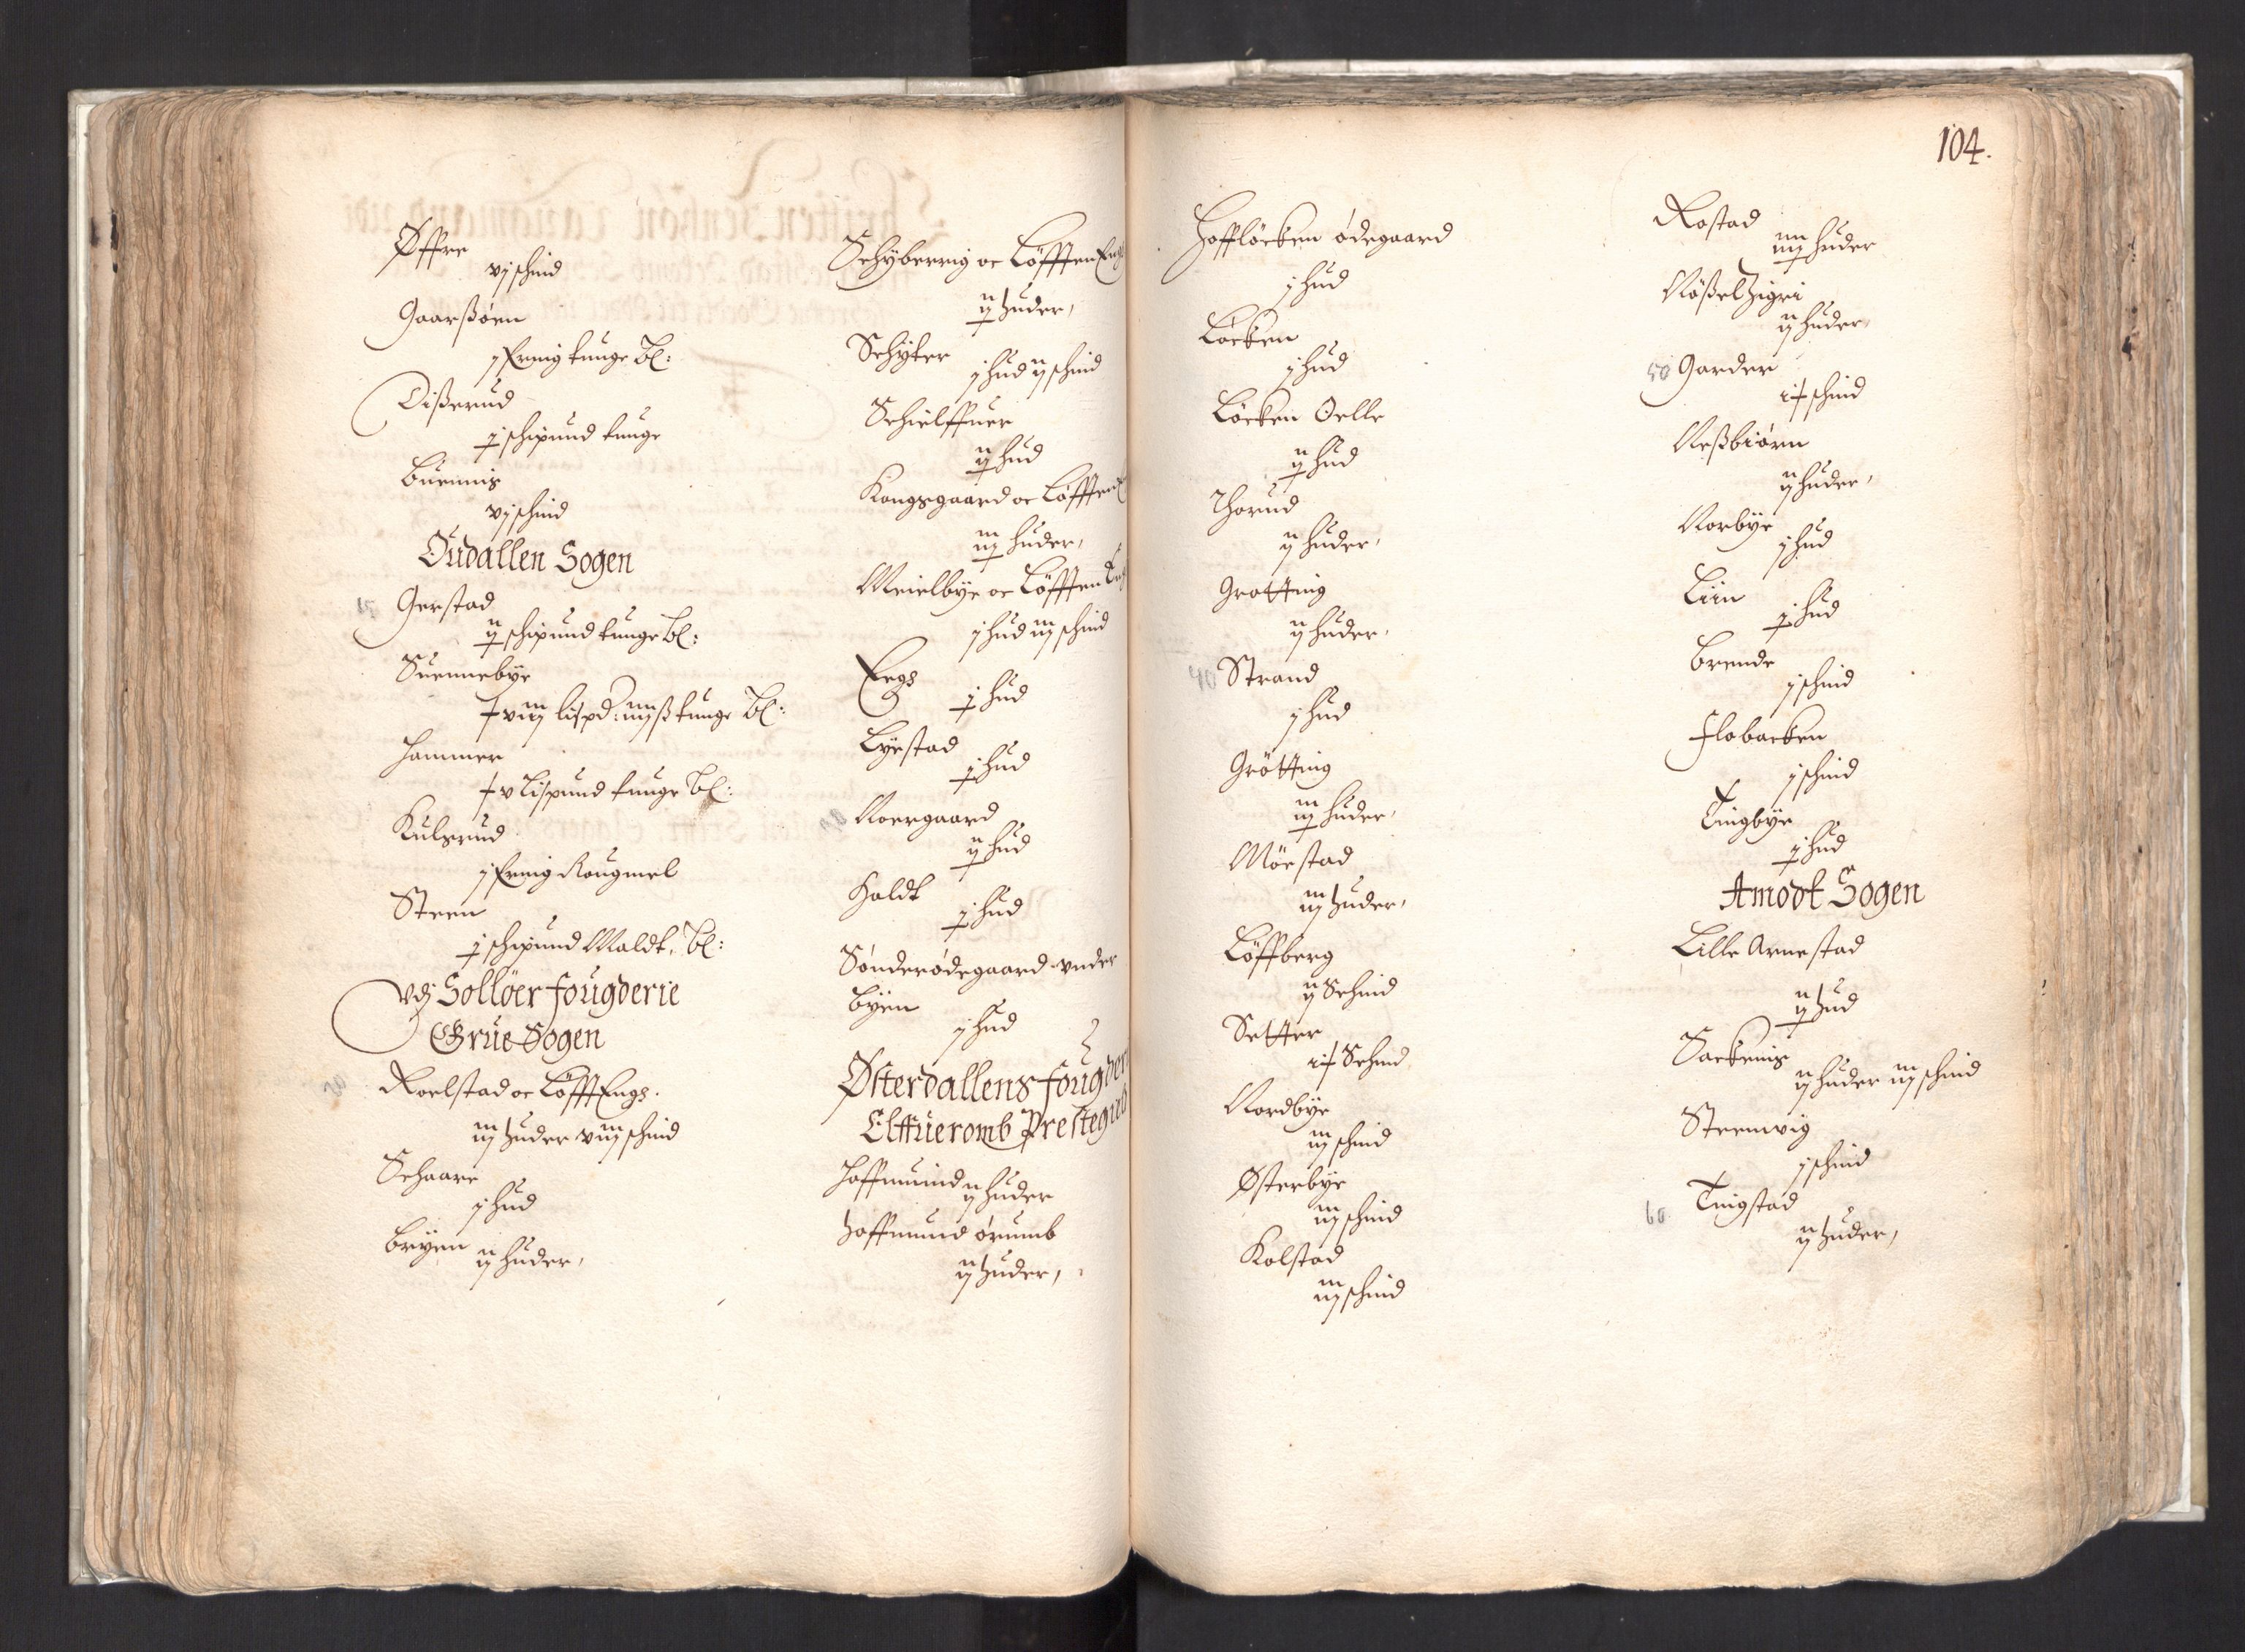 Øffre
vj schind
Gaarßøen
j fring tunge Bl:
Dißerud
j schipund tunge
Buennis
vj schind
Oudallen Sogen
15 Gerstad
ij schipund tunge Bl:
Suennebye
viij lispd: iiij ß tunge Bl:
Hammer
v Lispund tunge Bl:
Kulsrud
j fring Rougmel
Steen
j schipund Maldt, Bl:
vdj Solløer fougderie
Grue Sogen
20 Roelstad oc Løfft Engs.
iij huder viij schind
Schaare
j hud
Bryen ij huder,
Schyberrig oc Løfften Eng
ij huder,
Schyter
j hud ij schind
Schielffuer
ij hud
Kongsgaard oc Løfften
iij huder,
Meielbye oc Løfften
j hud iij schind
Eegs
j hud
Lyestad
j hud
Noergaard
ij hud
Holdt
j hud
Sønderødegaard vnder
Byen
j hud
Østerdallens foug
Elffueromb Prestegi
Hoffmuind ij huder
Hoffmuind ørumb
ij huder,
104.
Hoffløcken ødegaard
j hud
Løcken
j hud
Løcken Oelle
ij hud
Thorud
ij huder,
Grotting
ij huder,
40 Strand
j hud
Grøtting
iij huder,
Møestad
iij huder,
Løffberg
ij Schind
Setter
Schind
Nordbye
iij schind
Østerbye
iij schind
Kolstad
iij schind
Rostad
iiij huder
Nøßelhigri
ij huder,
50 Garder
schind
Neßbiørn
ij huder,
Norbye
j hud
Lien
j hud
Brende
j schind
Flobacken
j schind
Tingbye
j hud
Amodt Sogen
Lille Arnestad
ij hud
Sackenis
ij huder iij schind
Steenvig
j schind
60 Tingstad
ij huder,